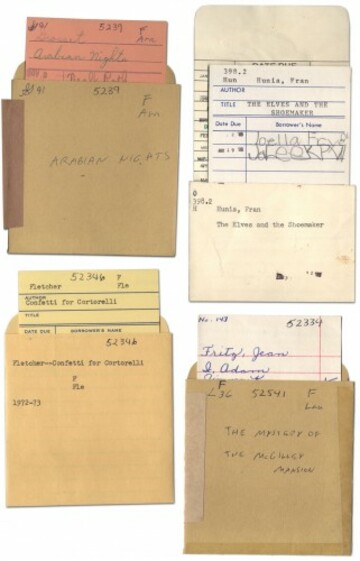 5239 F
Arabian Nights
5239
F
ARABIAN NIGHTS
DATE DUE
398.2
Hun Hunia, Fran
AUTHOR
TITLE THE ELVES AND THE
SHOEMAKER
Date Due Borrower's Name
398.2
H Hunia, Fran
The Elves and the Shoemaker
52346 F
Fletcher Fle
AUTHOR
Confetti for Cortorelli
TITLE
DATE DUE BORROWER'S NAME
52346
Fletcher--Confetti for Cortorelli
F
Fle
1972-73
No. 148 52339
Fritz, Jean
I. Adam
F
L36 52541 F
THE MYSTERY OF
THE McGILLEY
MANSION